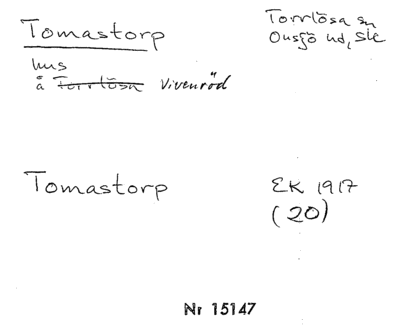 Tomastorp
Torrlösa sn
Onsjö hd, Sk
hus
å Torrlösa Vivenröd
Tomastorp
EK 1917
(20)
Nr 15147